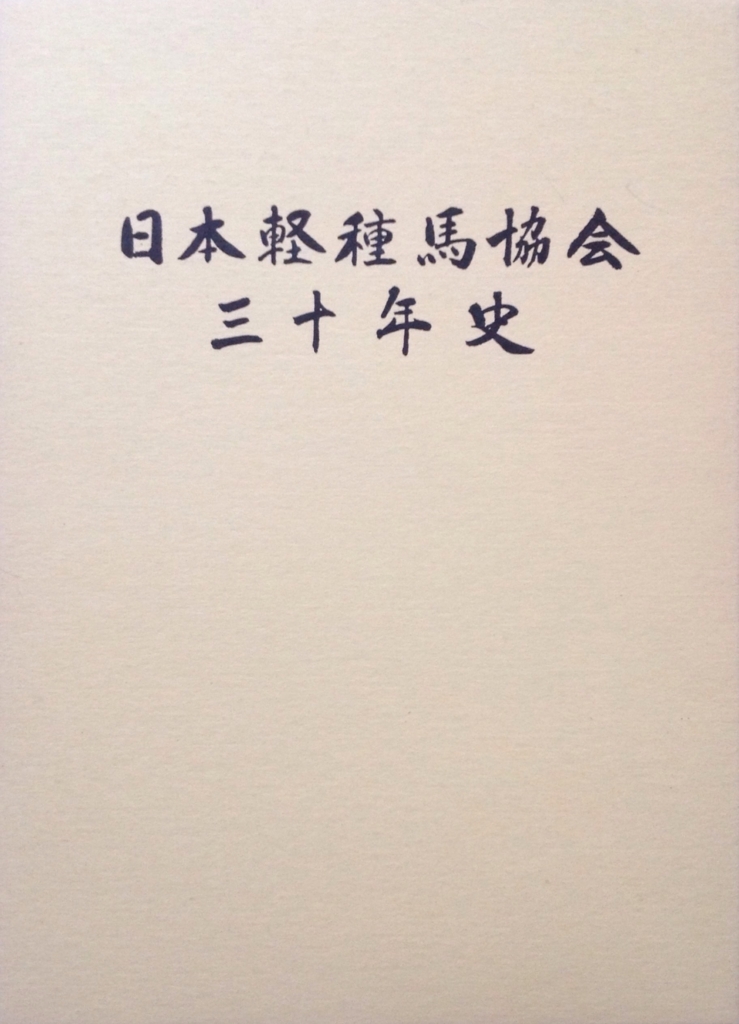 日本軽種馬協会
三十年史